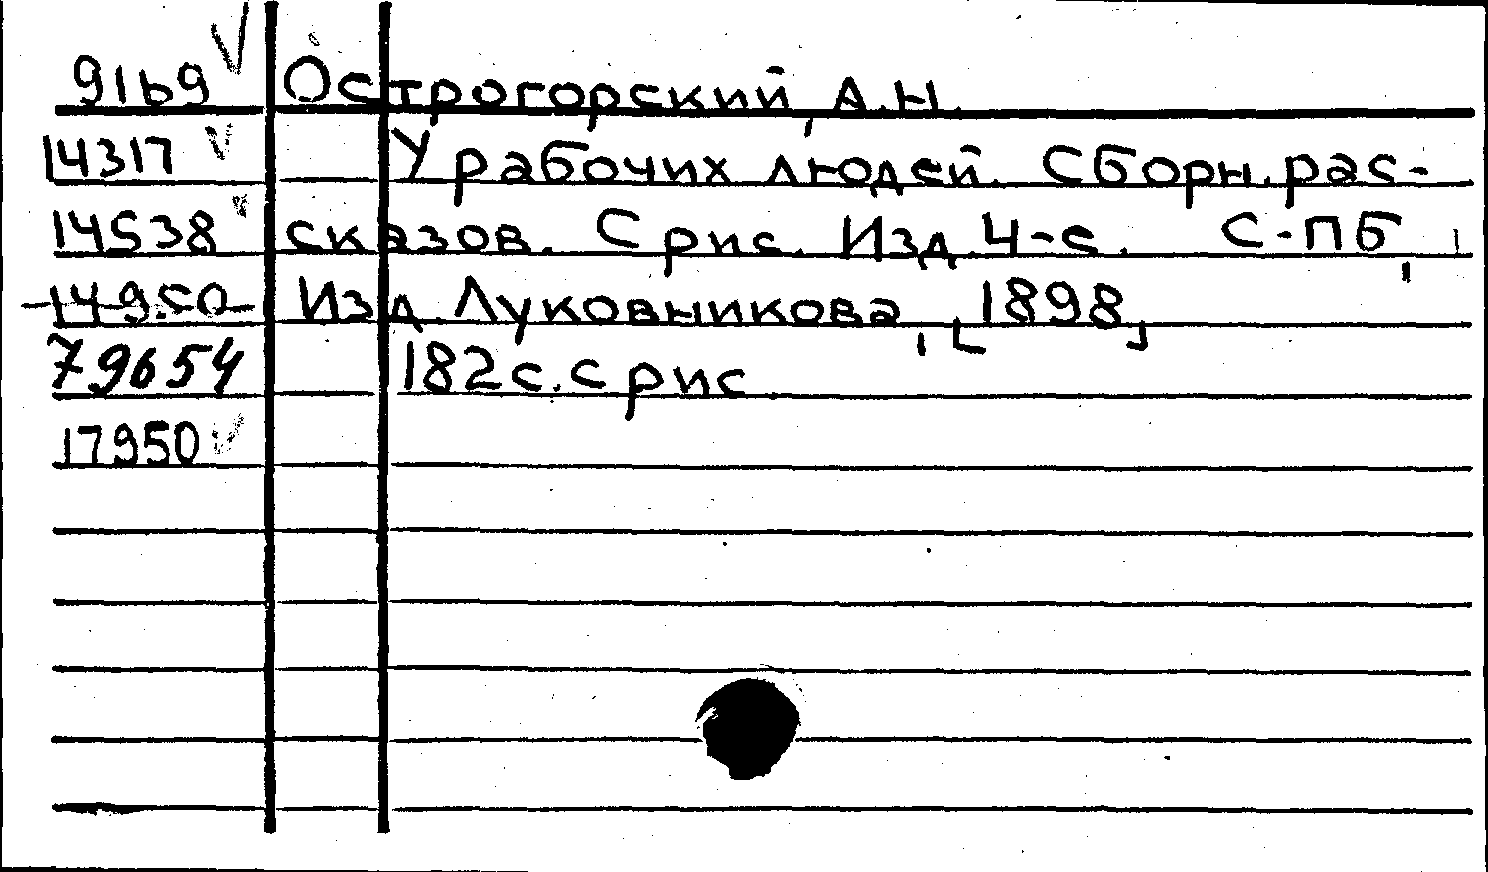 9169 Острогорский, А.Н.
14317 У рабочих людей. Сборн. рас-
14538 сказов. С рис. Изд. 4-е. С-ПБ,
14950 Изд. Луковникова, [1898]
79654 182 с. с рис
17950